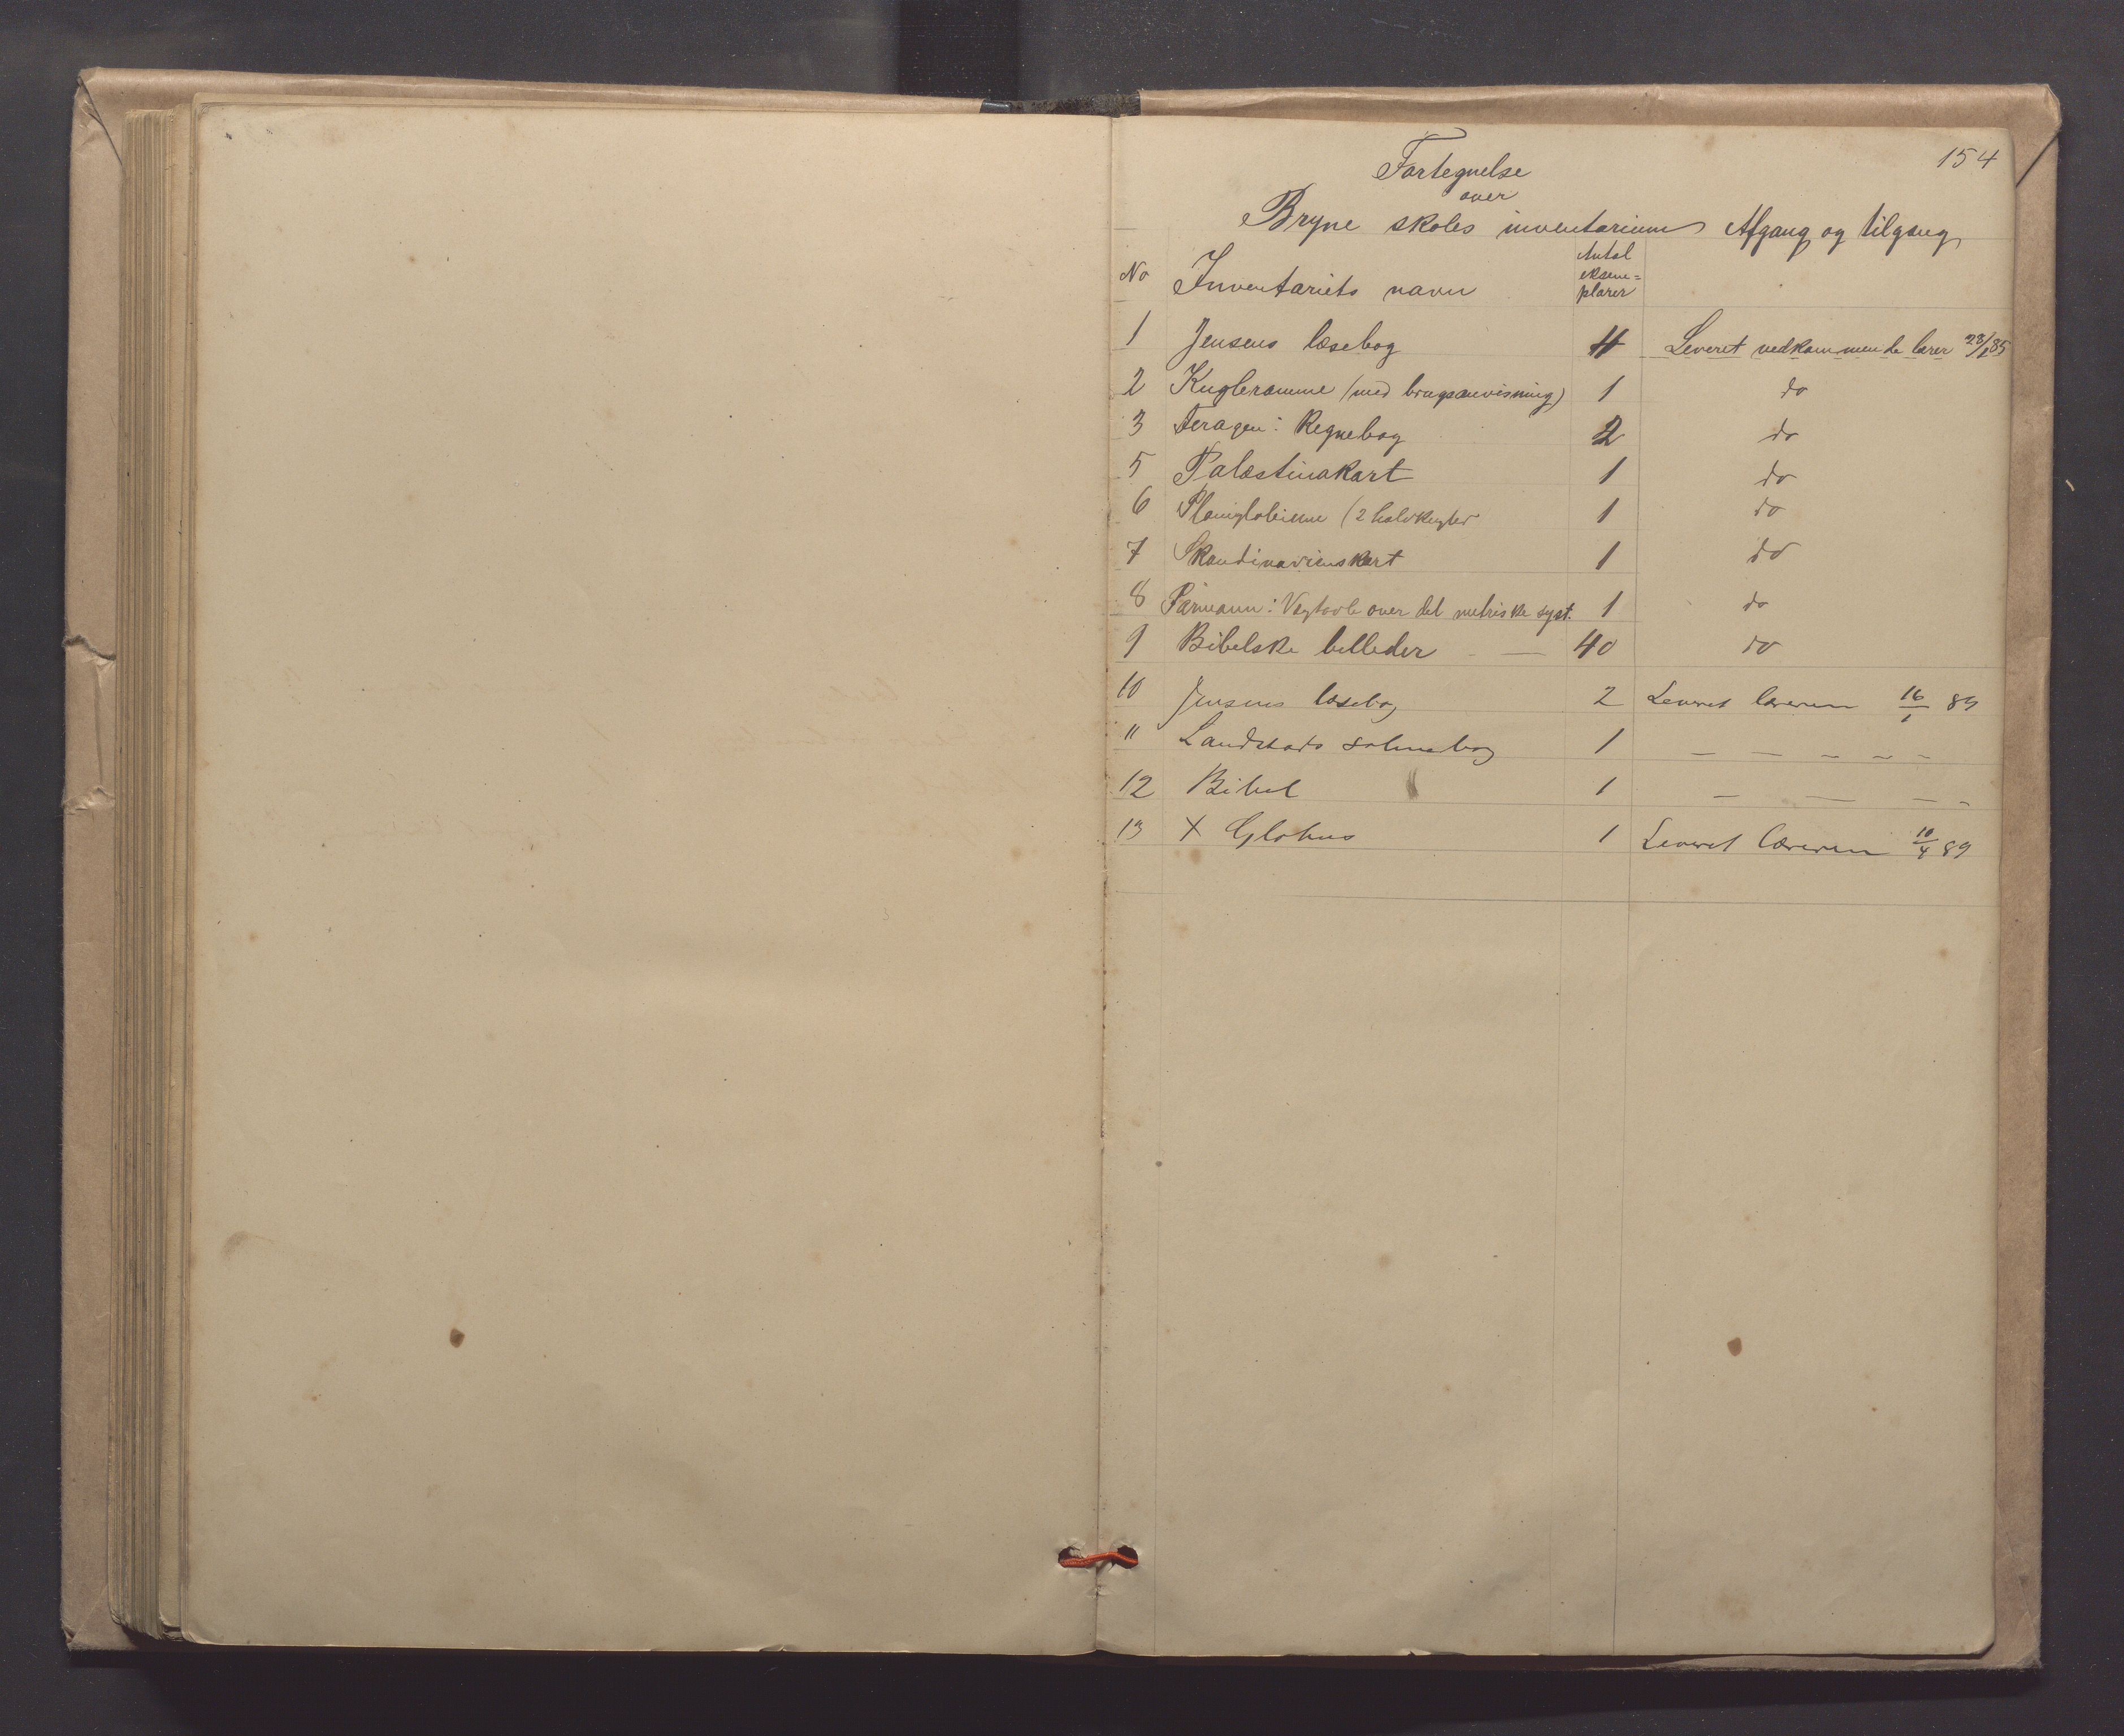 154
Fortegnelse
over
Bryne skoles inventarium Afgang og tilgang
No Inventariets navn Antal eksem=plarer
1 Jensens læsebog 4 Leveret vedkommende lærer 28/1 85
2 Kugleramme (med brugsanvisning) 1 do
3 Feragen: Regnebog 2 do
5 Palæstinakart 1 do
6 Planiglobierne (2 halvkugler 1 do
7 Skandinavienskart 1 do
8 Parmann: Vægtavle over det metriske syst. 1 do
9 Bibelske billeder — 40 do
10 Jensens læsebog 2 Leveret læreren 16/1 89
11 Landstads salmebog 1 — — — — —
12 Bibel 1 — — — —
13 X Globus 1 Leveret læreren 10/4 89